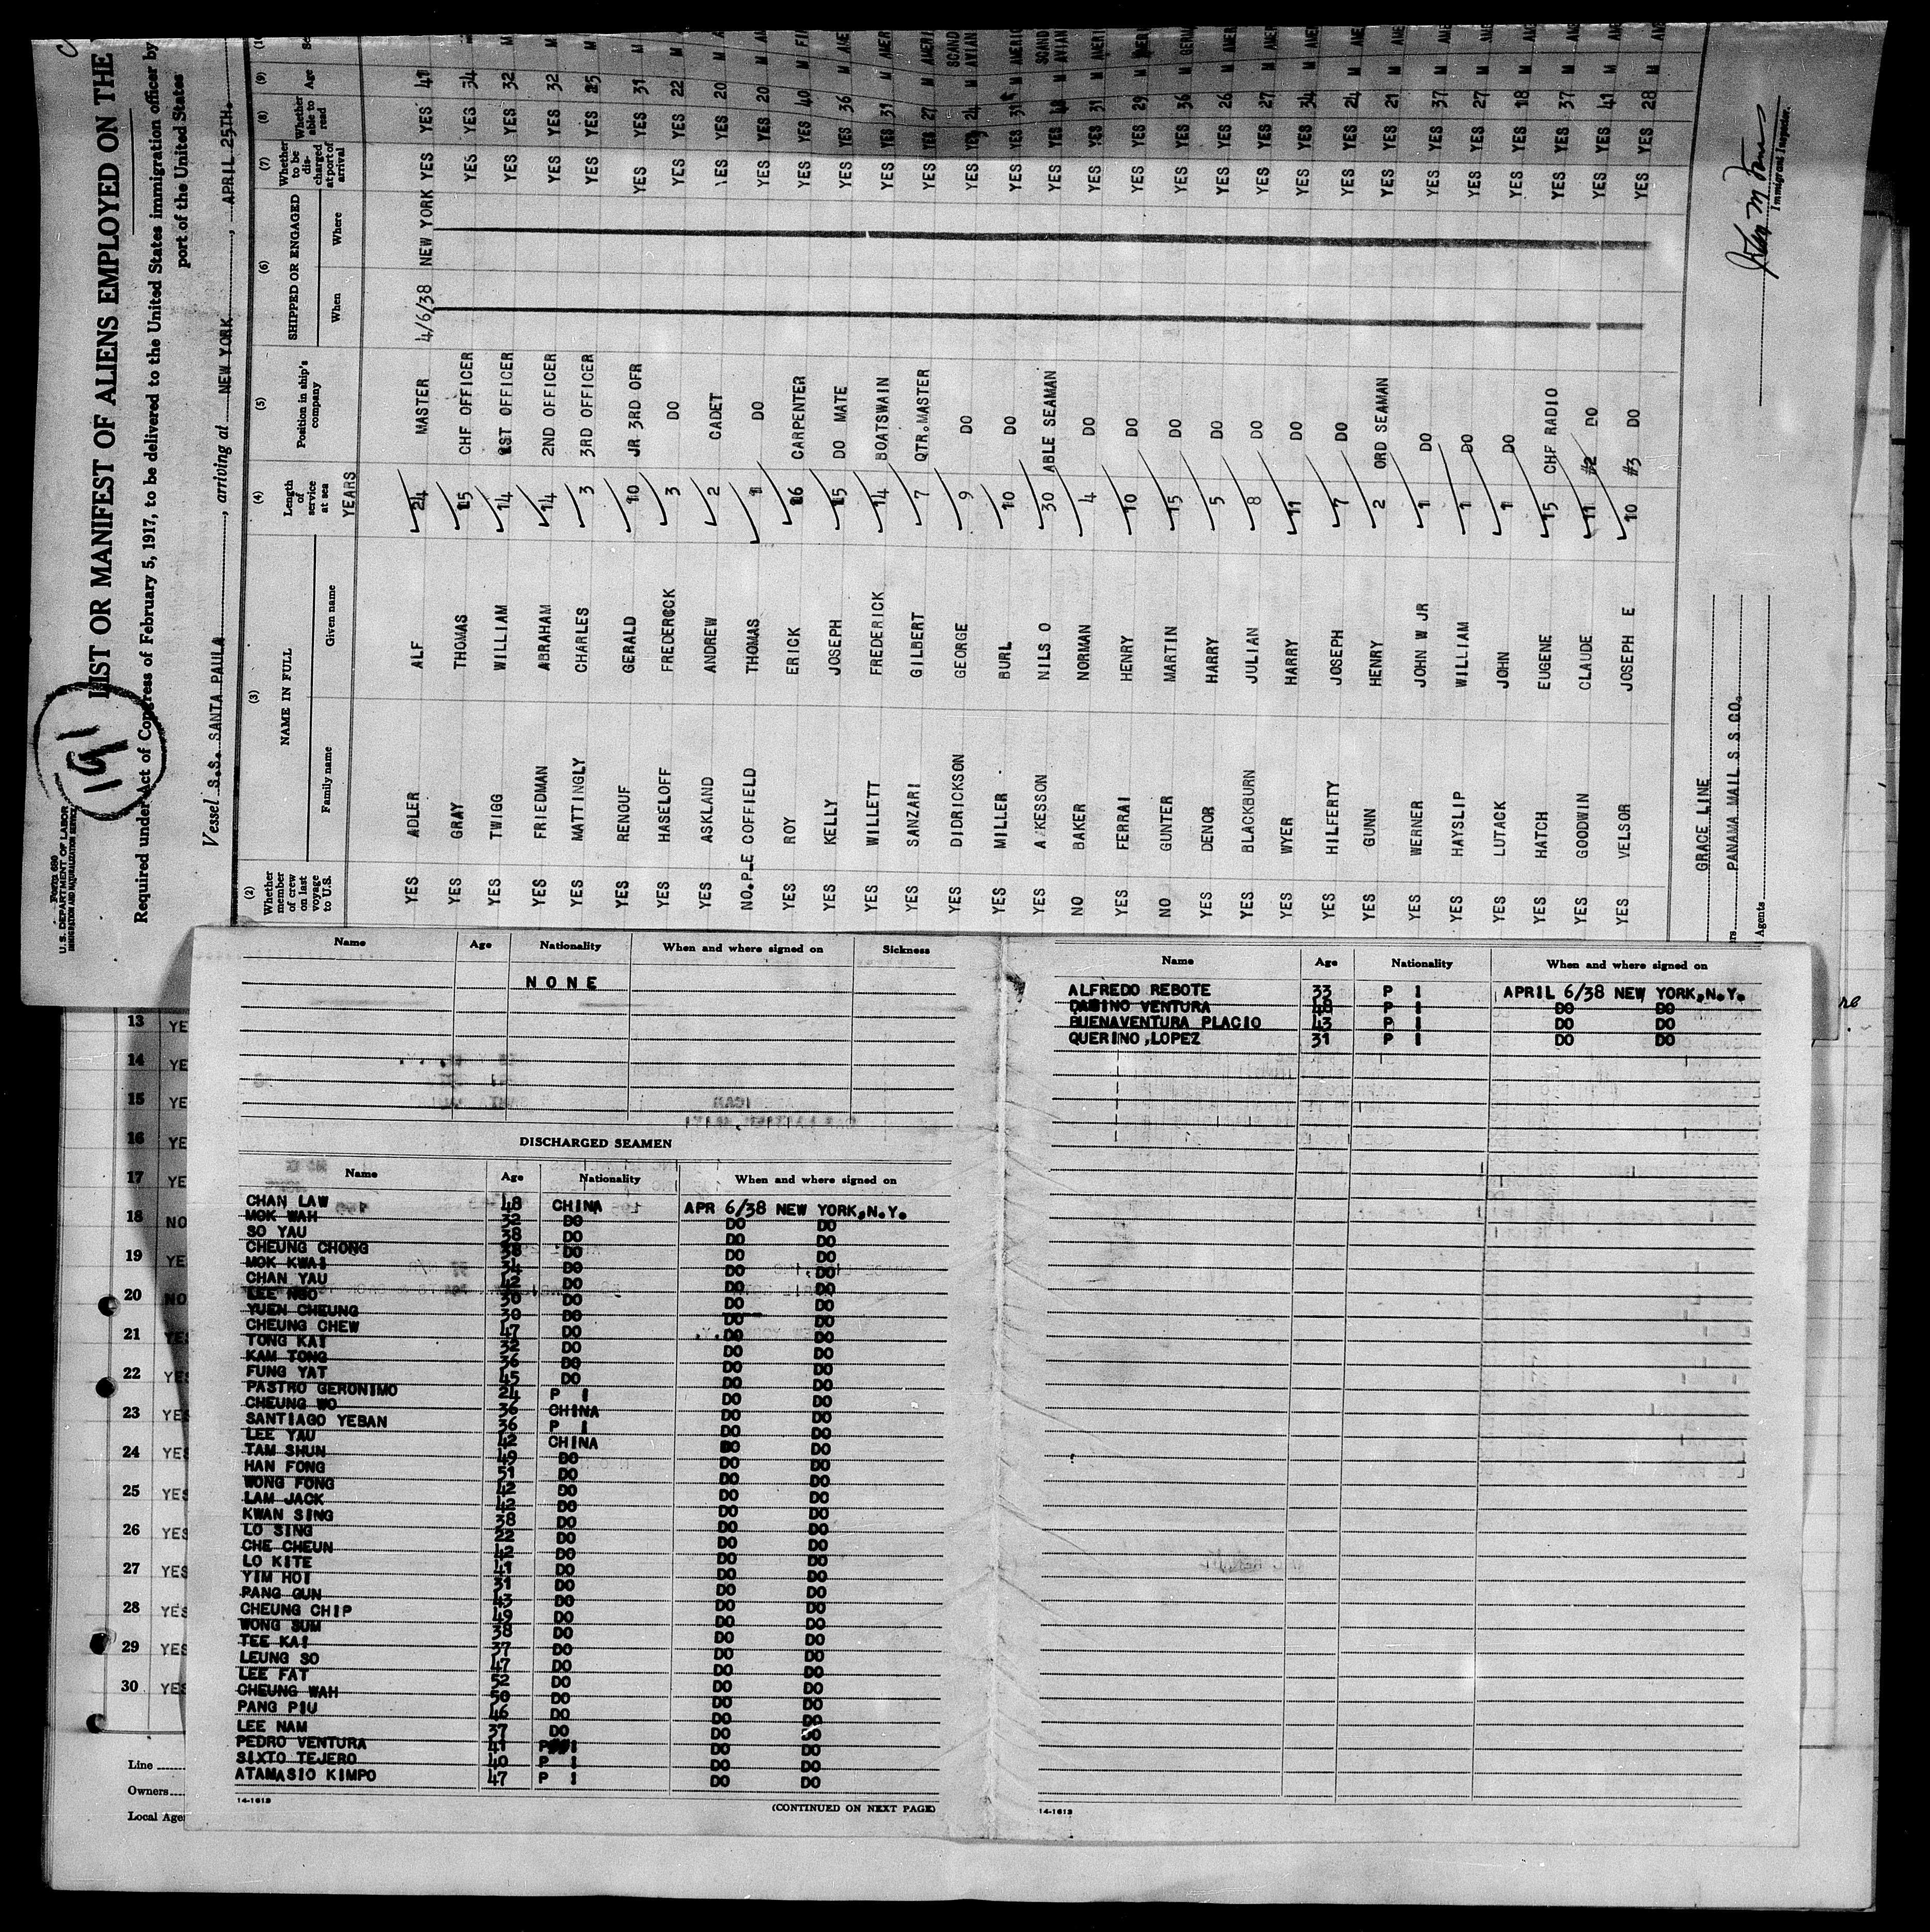 191
Form 680
U.S. DEPARTMENT OF LABOR
IMMIGRATION AND NATURALIZATION SERVICE
LIST OR MANIFEST OF ALIENS EMPLOYED ON THE
Required under Act of Congress of February 5, 1917, to be delivered to the United States immigration officer by
port of the United States
Vessel S.S. SANTA PAULA, arriving at NEW YORK, APRIL 25TH.
(2) (3) (4) (5) (6) (7) (8) (9)
Whether member of crew on last voyage to U.S. NAME IN FULL Family name Given name Length of service at sea Position in ship's company SHIPPED OR ENGAGED When Where Whether to be discharged at port of arrival Whether able to read Age
YEARS
YES ADLER ALF 24 MASTER 4/6/38 NEW YORK YES YES 41
YES GRAY THOMAS 15 CHF OFFICER YES YES 34 M
YES TWIGG WILLIAM 14 1ST OFFICER YES YES 32 M
YES FRIEDMAN ABRAHAM 14 2ND OFFICER YES YES 32 M
YES MATTINGLY CHARLES 3 3RD OFFICER YES YES 25 M
YES RENOUF GERALD 10 JR 3RD OFR YES YES 31 M
YES HASELOFF FREDERICK 3 DO YES YES 22 M
YES ASKLAND ANDREW 2 CADET YES YES 20 M A
NO.P.E COFFIELD THOMAS 1 DO YES YES 20 M AM
YES ROY ERICK 26 CARPENTER YES YES 40 M FI
YES KELLY JOSEPH 15 DO MATE YES YES 36 M AME
YES WILLETT FREDERICK 14 BOATSWAIN YES YES 31 M AMER
YES SANZARI GILBERT 7 QTR.MASTER YES YES 27 M AMERI
YES DIDRICKSON GEORGE 9 DO YES YES 24 M SCAND AVIAN
YES MILLER BURL 10 DO YES YES 31 M AMERIC
YES AKESSON NILS O 30 ABLE SEAMAN YES YES M SCAND AVIAN
NO BAKER NORMAN 4 DO YES YES 31 M AMERI
YES FERRAI HENRY 10 DO YES YES 29 M AMER
NO GUNTER MARTIN 15 DO YES YES 36 M GERM
YES DENOR HARRY 5 DO YES YES 26 M AMER
YES BLACKBURN JULIAN 8 DO YES YES 27 M AMER
YES WYER HARRY 11 DO YES YES 34 M AMER
YES HILFERTY JOSEPH 7 DO YES YES 24 M AME
YES GUNN HENRY 2 ORD SEAMAN YES YES 21 M AME
YES WERNER JOHN W JR 1 DO YES YES 37 M AME
YES HAYSLIP WILLIAM 1 DO YES YES 27 M AM
YES LUTACK JOHN 1 DO YES YES 18 M AM
YES HATCH EUGENE 15 CHF RADIO YES YES 37 M AM
YES GOODWIN CLAUDE 11 #2 DO YES YES 41 M AM
YES VELSOR JOSEPH E 10 #3 DO YES YES 28 M AM
GRACE LINE
PANAMA MAIL S S CO.
Agents
Immigrant Inspector.
Name Age Nationality When and where signed on Sickness
NONE
DISCHARGED SEAMEN
Name Age Nationality When and where signed on
CHAN LAW 48 CHINA APR 6/38 NEW YORK,N.Y.
MOK WAH 32 DO DO DO
SO YAU 38 DO DO DO
CHEUNG CHONG 38 DO DO DO
MOK KWAI 34 DO DO DO
CHAN YAU 42 DO DO DO
LEE 30 DO DO DO
YUEN CHEUNG 30 DO DO DO
CHEUNG CHEW 47 DO DO DO
TONG KAI 32 DO DO DO
KAM TONG 36 DO DO DO
FUNG YAT 45 DO DO DO
PASTRO GERONIMO 24 P I DO DO
CHEUNG WO 36 CHINA DO DO
SANTIAGO YEBAN 36 P I DO DO
LEE YAU 42 CHINA DO DO
TAM SHUN 49 DO DO DO
HAN FONG 51 DO DO DO
WONG FONG 42 DO DO DO
LAM JACK 42 DO DO DO
KWAN SING 38 DO DO DO
LO SING 22 DO DO DO
CHE CHEUN 42 DO DO DO
LO KITE 41 DO DO DO
YIM HOI 31 DO DO DO
PANG GUN 43 DO DO DO
CHEUNG CHIP 49 DO DO DO
WONG SUM 38 DO DO DO
TEE KAI 37 DO DO DO
LEUNG SO 47 DO DO DO
LEE FAT 52 DO DO DO
CHEUNG WAH 50 DO DO DO
PANG PIU 46 DO DO DO
LEE NAM 37 DO DO DO
PEDRO VENTURA 41 P I DO DO
SIXTO TEJERO 40 P I DO DO
ATAMASIO KIMPO 47 P I DO DO
14-1613 (CONTINUED ON NEXT PAGE)
Name Age Nationality When and where signed on
ALFREDO REBOTE 33 P I APRIL 6/38 NEW YORK,N.Y.
VENTURA 48 P I DO DO
BUENAVENTURA PLACIO 43 P I DO DO
QUERINO,LOPEZ 31 P I DO DO
14-1613
13 YE
14 YE
15 YE
16 YE
17 YE
18 NO
19 YE
20 NO
21 YES
22 YES
23 YES
24 YES
25 YES
26 YES
27 YES
28 YES
29 YES
30 YES
Line
Owners
Local Age